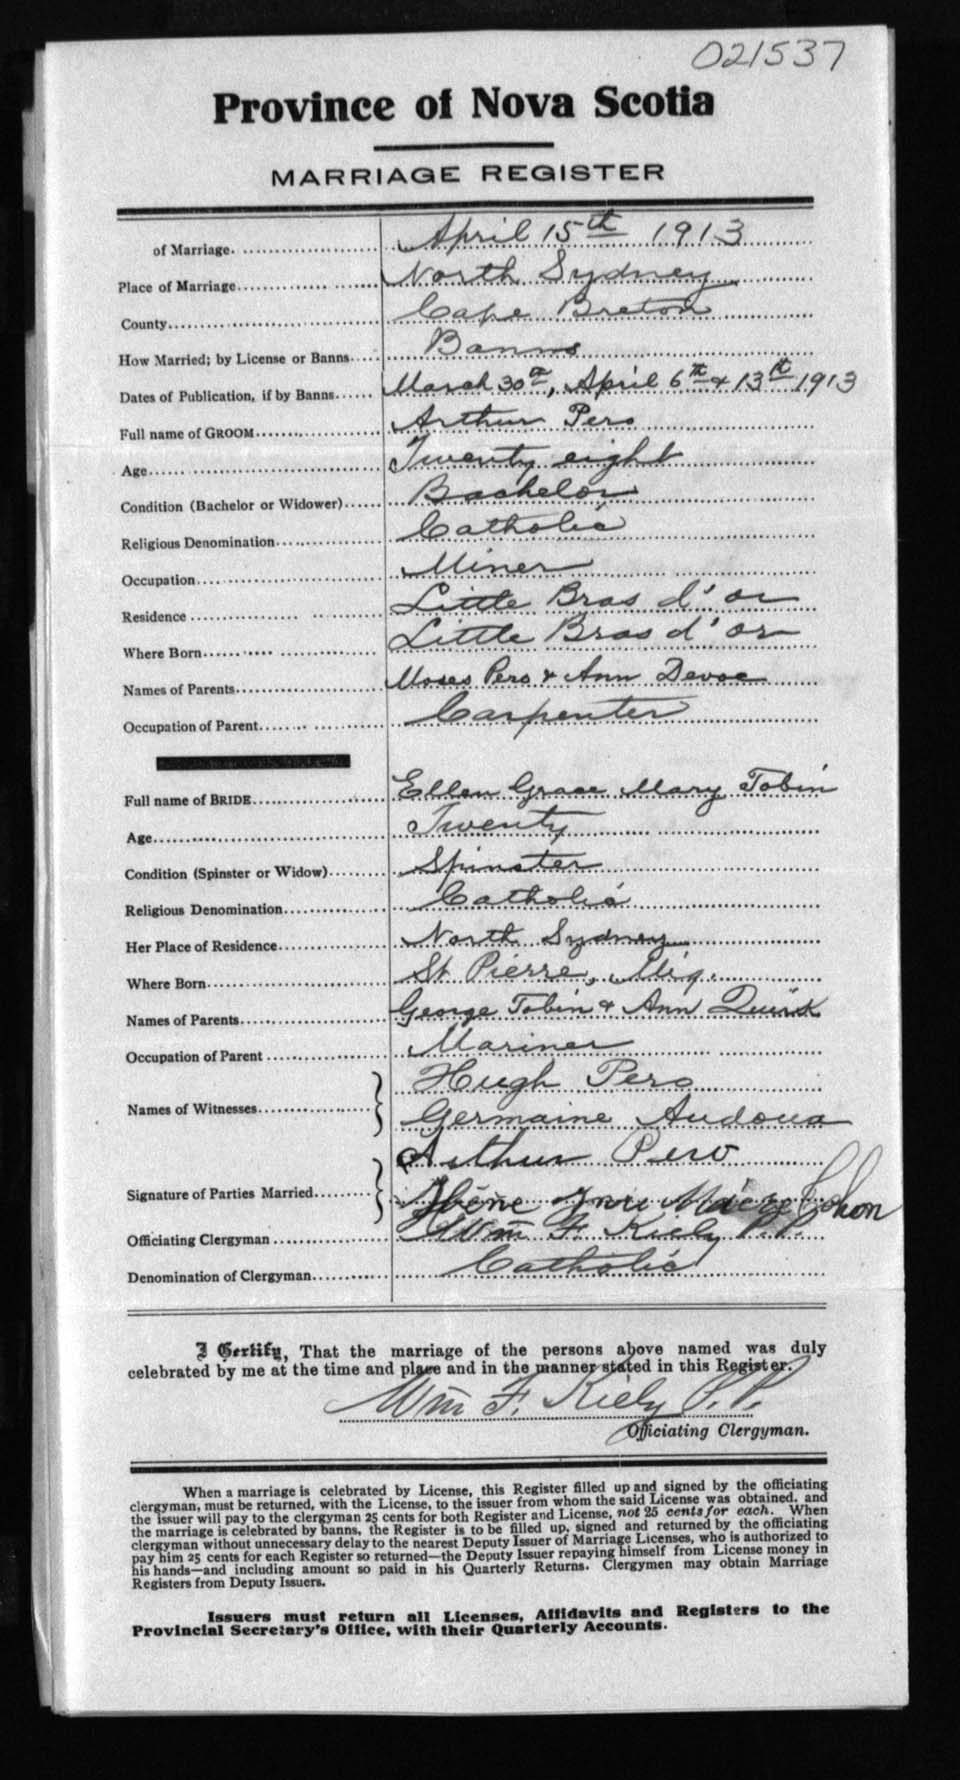 021537
Province of Nova Scotia
MARRIAGE REGISTER
of Marriage. April 15th 1913
Place of Marriage North Sydney
County Cape Breton
How Married; by License or Banns Banns
Dates of Publication, if by Banns March 30th, April 6th & 13th 1913
Full name of GROOM Arthur Pero
Age Twenty eight
Condition (Bachelor or Widower) Bachelor
Religious Denomination Catholic
Occupation Miner
Residence Little Bras d'or
Where Born Little Bras d'or
Names of Parents Moses Pero & Ann Devoe
Occupation of Parent Carpenter
Full name of BRIDE Ellen Grace Mary Tobin
Age Twenty
Condition (Spinster or Widow) Spinster
Religious Denomination Catholic
Her Place of Residence North Sydney
Where Born St. Pierre, Miq.
Names of Parents George Tobin & Ann Quirk
Occupation of Parent Mariner
Names of Witnesses Hugh Pero
Germaine Audoua
Signature of Parties Married Arthur Pero
Officiating Clergyman Wm F. Kiely P.P.
Denomination of Clergyman Catholic
I Certify, That the marriage of the persons above named was duly
celebrated by me at the time and place and in the manner stated in this Register.
Wm F. Kiely P.P.
Officiating Clergyman.
When a marriage is celebrated by License, this Register filled up and signed by the officiating
clergyman, must be returned, with the License, to the issuer from whom the said License was obtained, and
the issuer will pay to the clergyman 25 cents for both Register and License, not 25 cents for each. When
the marriage is celebrated by banns, the Register is to be filled up, signed and returned by the officiating
clergyman without unnecessary delay to the nearest Deputy Issuer of Marriage Licenses, who is authorized to
pay him 25 cents for each Register so returned—the Deputy Issuer repaying himself from License money in
his hands—and including amount so paid in his Quarterly Returns. Clergymen may obtain Marriage
Registers from Deputy Issuers.
Issuers must return all Licenses, Affidavits and Registers to the
Provincial Secretary's Office, with their Quarterly Accounts.